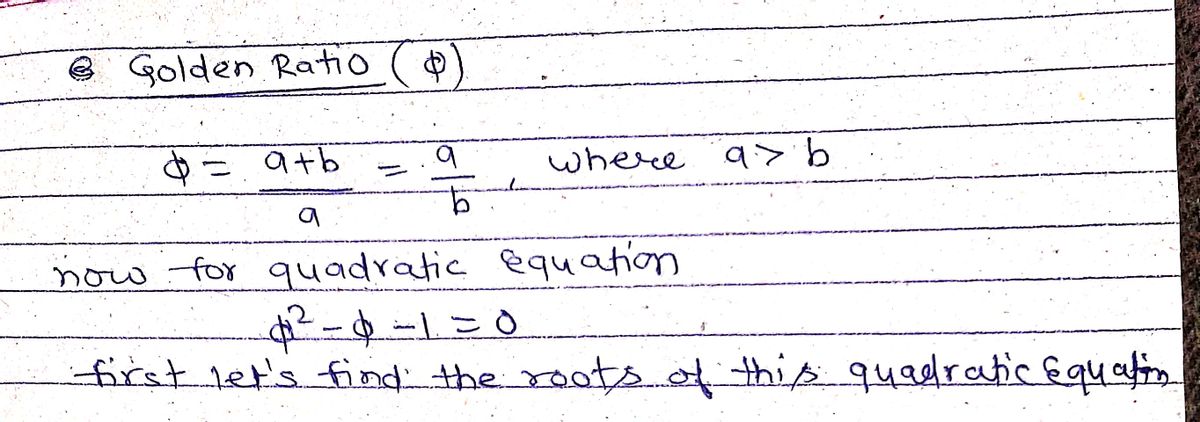 Golden Ratio (φ)
φ = a+b/a = a/b, where a > b
now for quadratic equation
φ² - φ - 1 = 0
first let's find the roots of this quadratic Equation